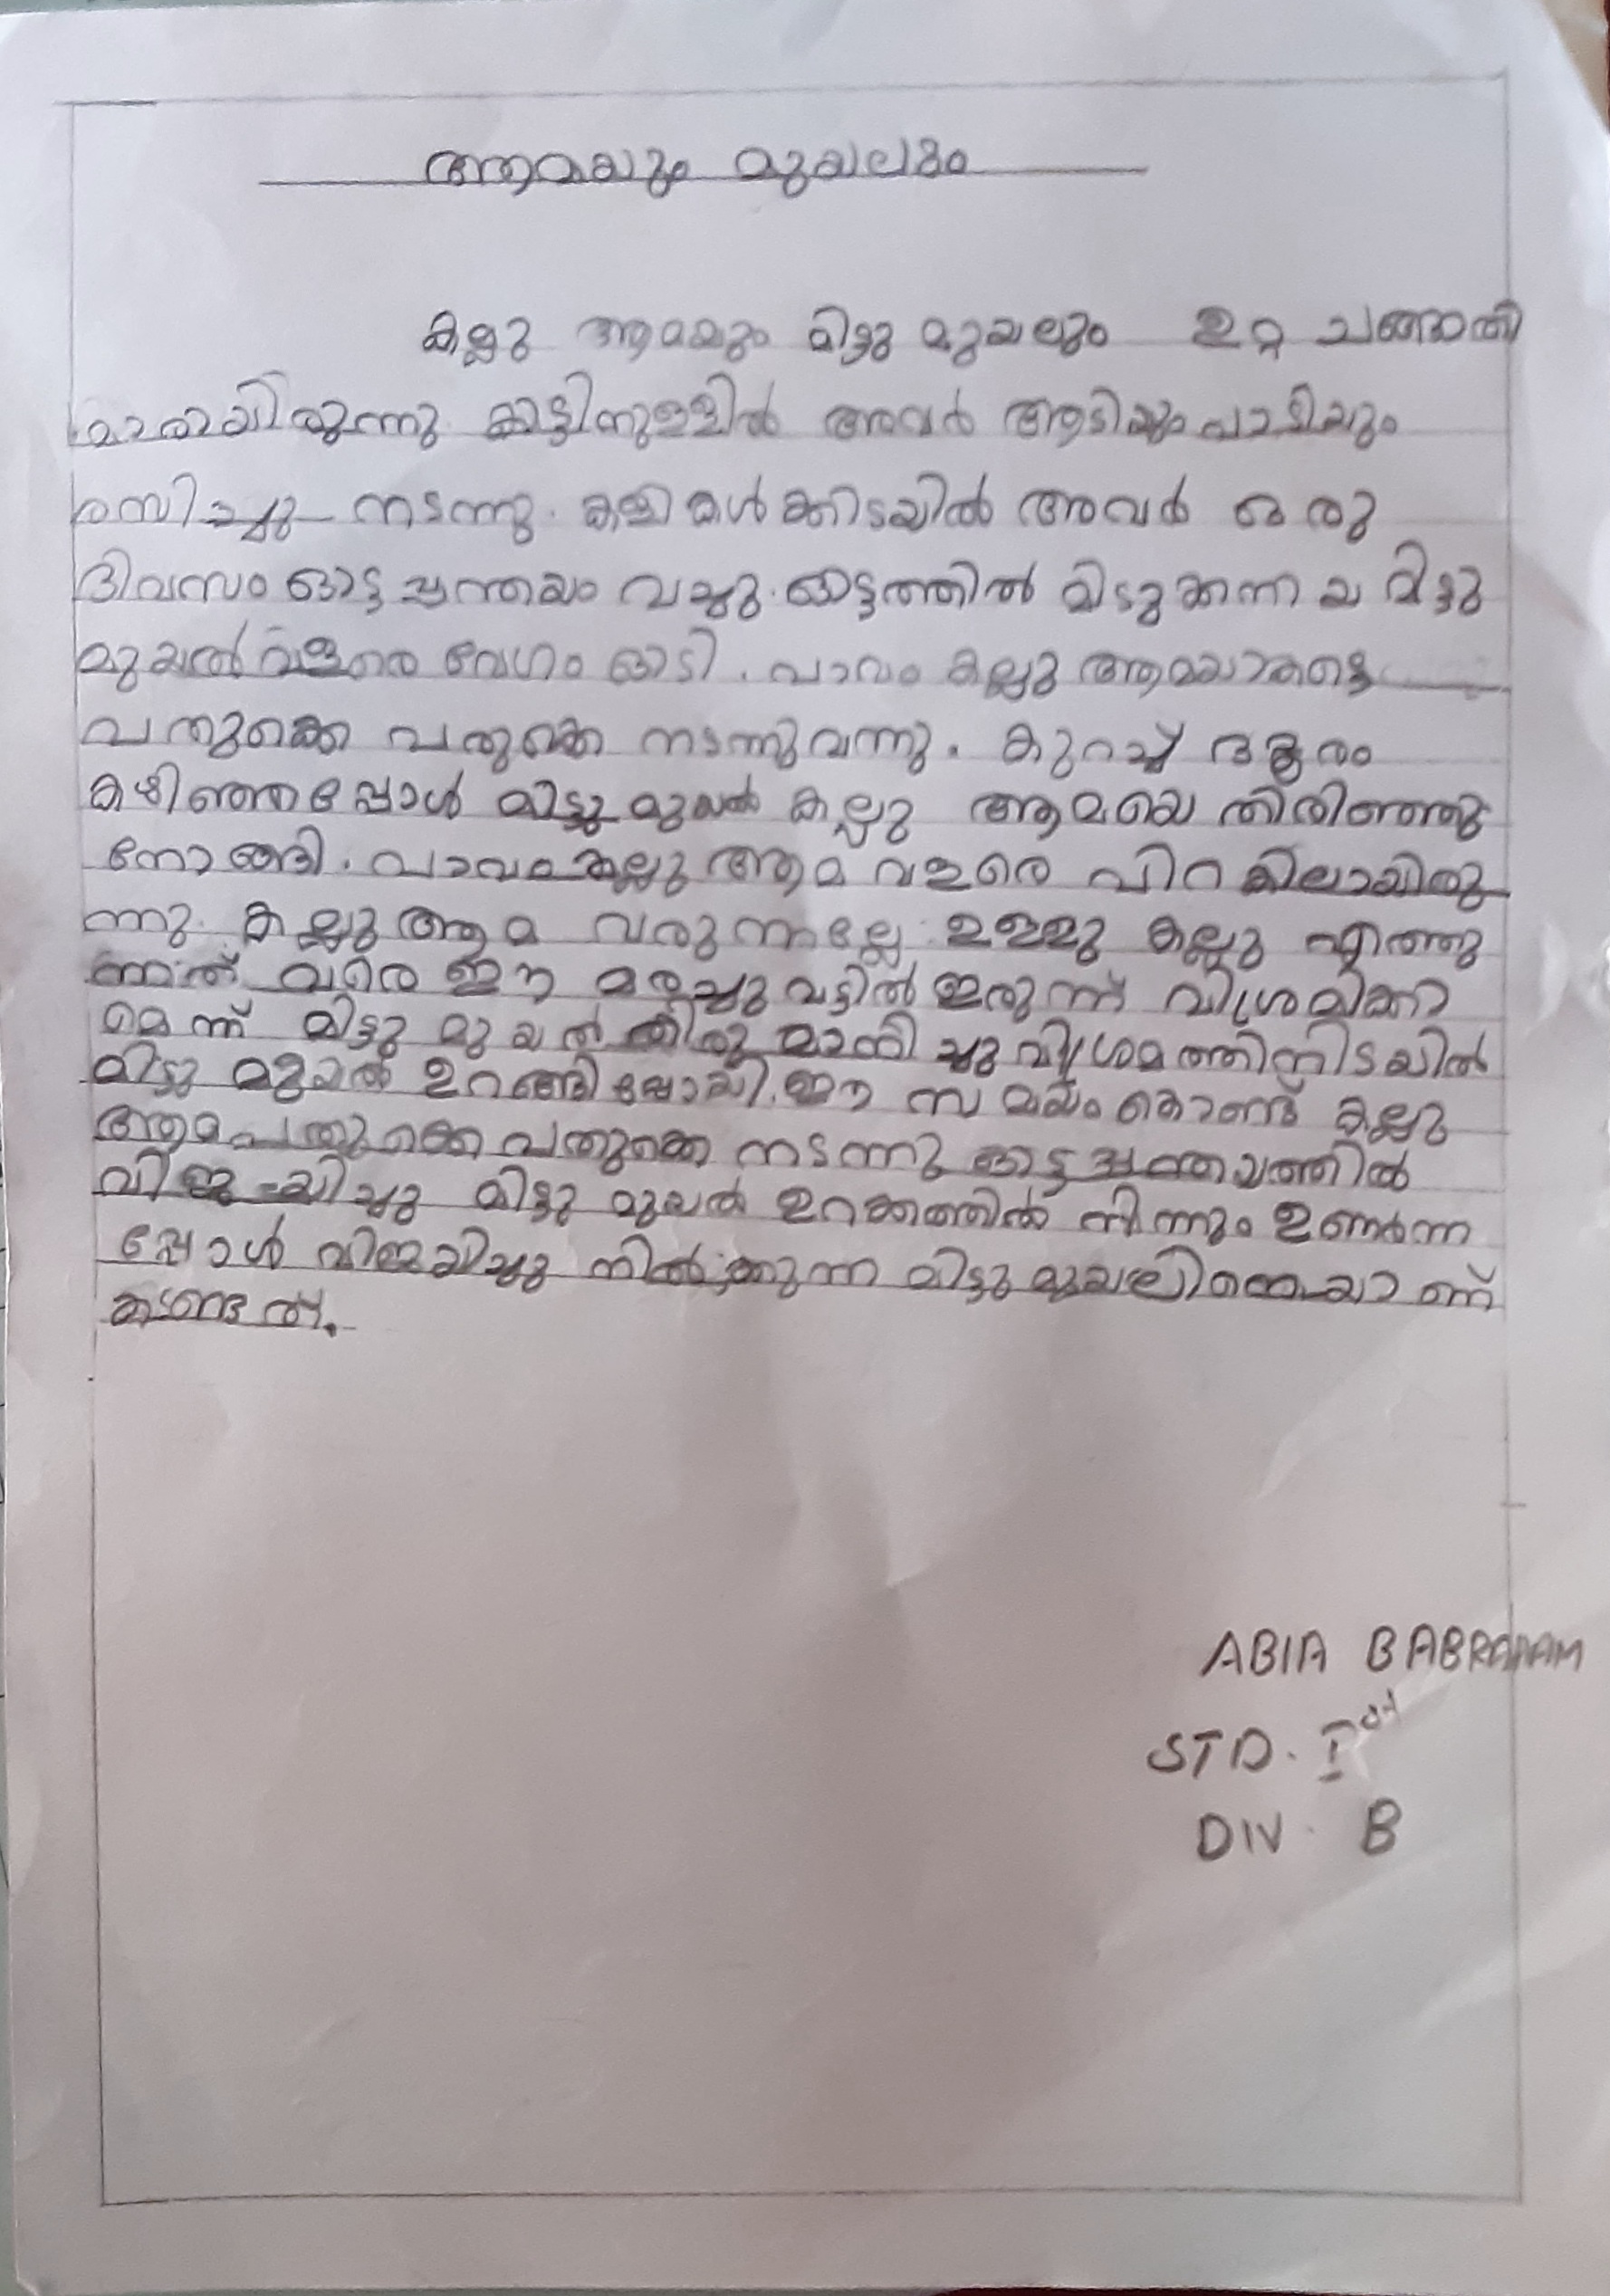 ആമയും മുയലും
കല്ലു ആമയും മിട്ടു മുയലും ഉറ്റ ചങ്ങാതി
മാരായിരുന്നു. കാട്ടിനുള്ളിൽ അവർ ആടിയും പാടിയും
രസിച്ചു നടന്നു. കളികൾക്കിടയിൽ അവർ ഒരു
ദിവസം ഓട്ട പ്പന്തയം വച്ചു. ഓട്ടത്തിൽ മിടുക്കനായ മിട്ടു
മുയൽ വളരെ വേഗം ഓടി. പാവം കല്ലു ആമയാകട്ടെ
പതുക്കെ പതുക്കെ നടന്നുവന്നു. കുറച്ച് ദൂരം
കഴിഞ്ഞപ്പോൾ മിട്ടു മുയൽ കല്ലു ആമയെ തിരിഞ്ഞു
നോങ്ങി. പാവം കല്ലു ആമ വളരെ പിറകിലായിരു
ന്നു. കല്ലു ആമ വരുന്നല്ലേ ഉള്ളു കല്ലു എത്തു
ന്നത് വരെ ഈ മരച്ചുവട്ടിൽ ഇരുന്ന് വിശ്രമിക്കാ
മെന്ന് മിട്ടു മുയൽ തീരുമാനിച്ചു വിശ്രമത്തിനിടയിൽ
മിട്ടു മുയൽ ഉറങ്ങി പ്പോയി. ഈ സമയം കൊണ്ട് കല്ലു
ആമ പതുക്കെ പതുക്കെ നടന്നു ഓട്ട പ്പന്തയത്തിൽ
വിജയിച്ചു മിട്ടു മുയൽ ഉറക്കത്തിൽ നിന്നും ഉണർന്ന
പ്പോൾ വിജയിച്ചു നിൽക്കുന്ന മിട്ടു മുയലിനെയാണ്
കണ്ടത്.
ABIA BABRAHAM
STD. I
DIV. B